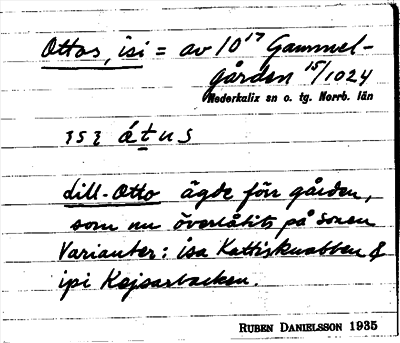 Ottos, isi = av 10¹⁷ Gammel-
gården ¹⁵/1024
Nederkalix sn o. tg. Norrb. län
átus
dill-Otto ägde förr gården,
som nu överlåtits på sonen
Varianter: isa Kattisknabben &
ipi Kejsarbacken.
RUBEN DANIELSSON 1935